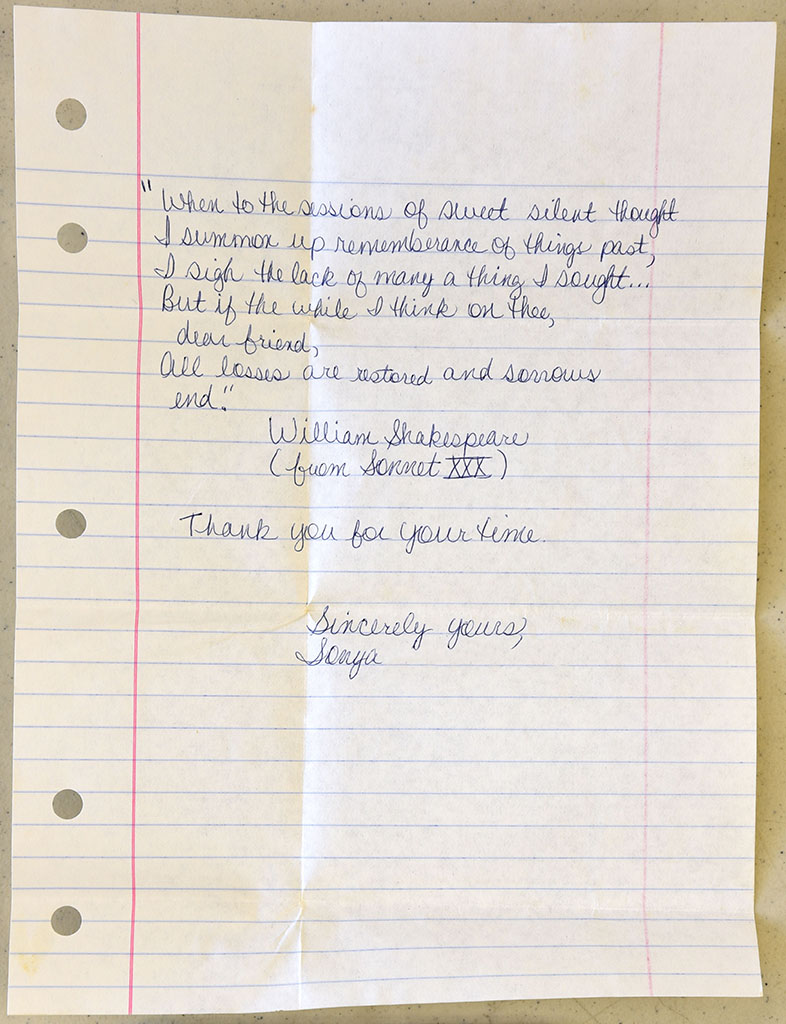 "When to the sessions of sweet silent thought
I summon up rememberance of things past,
I sigh the lack of many a thing I sought...
But if the while I think on thee,
dear friend,
All losses are restored and sorrows
end."
William Shakespeare
(from Sonnet XXX)
Thank you for your time.
Sincerely yours,
Sonya